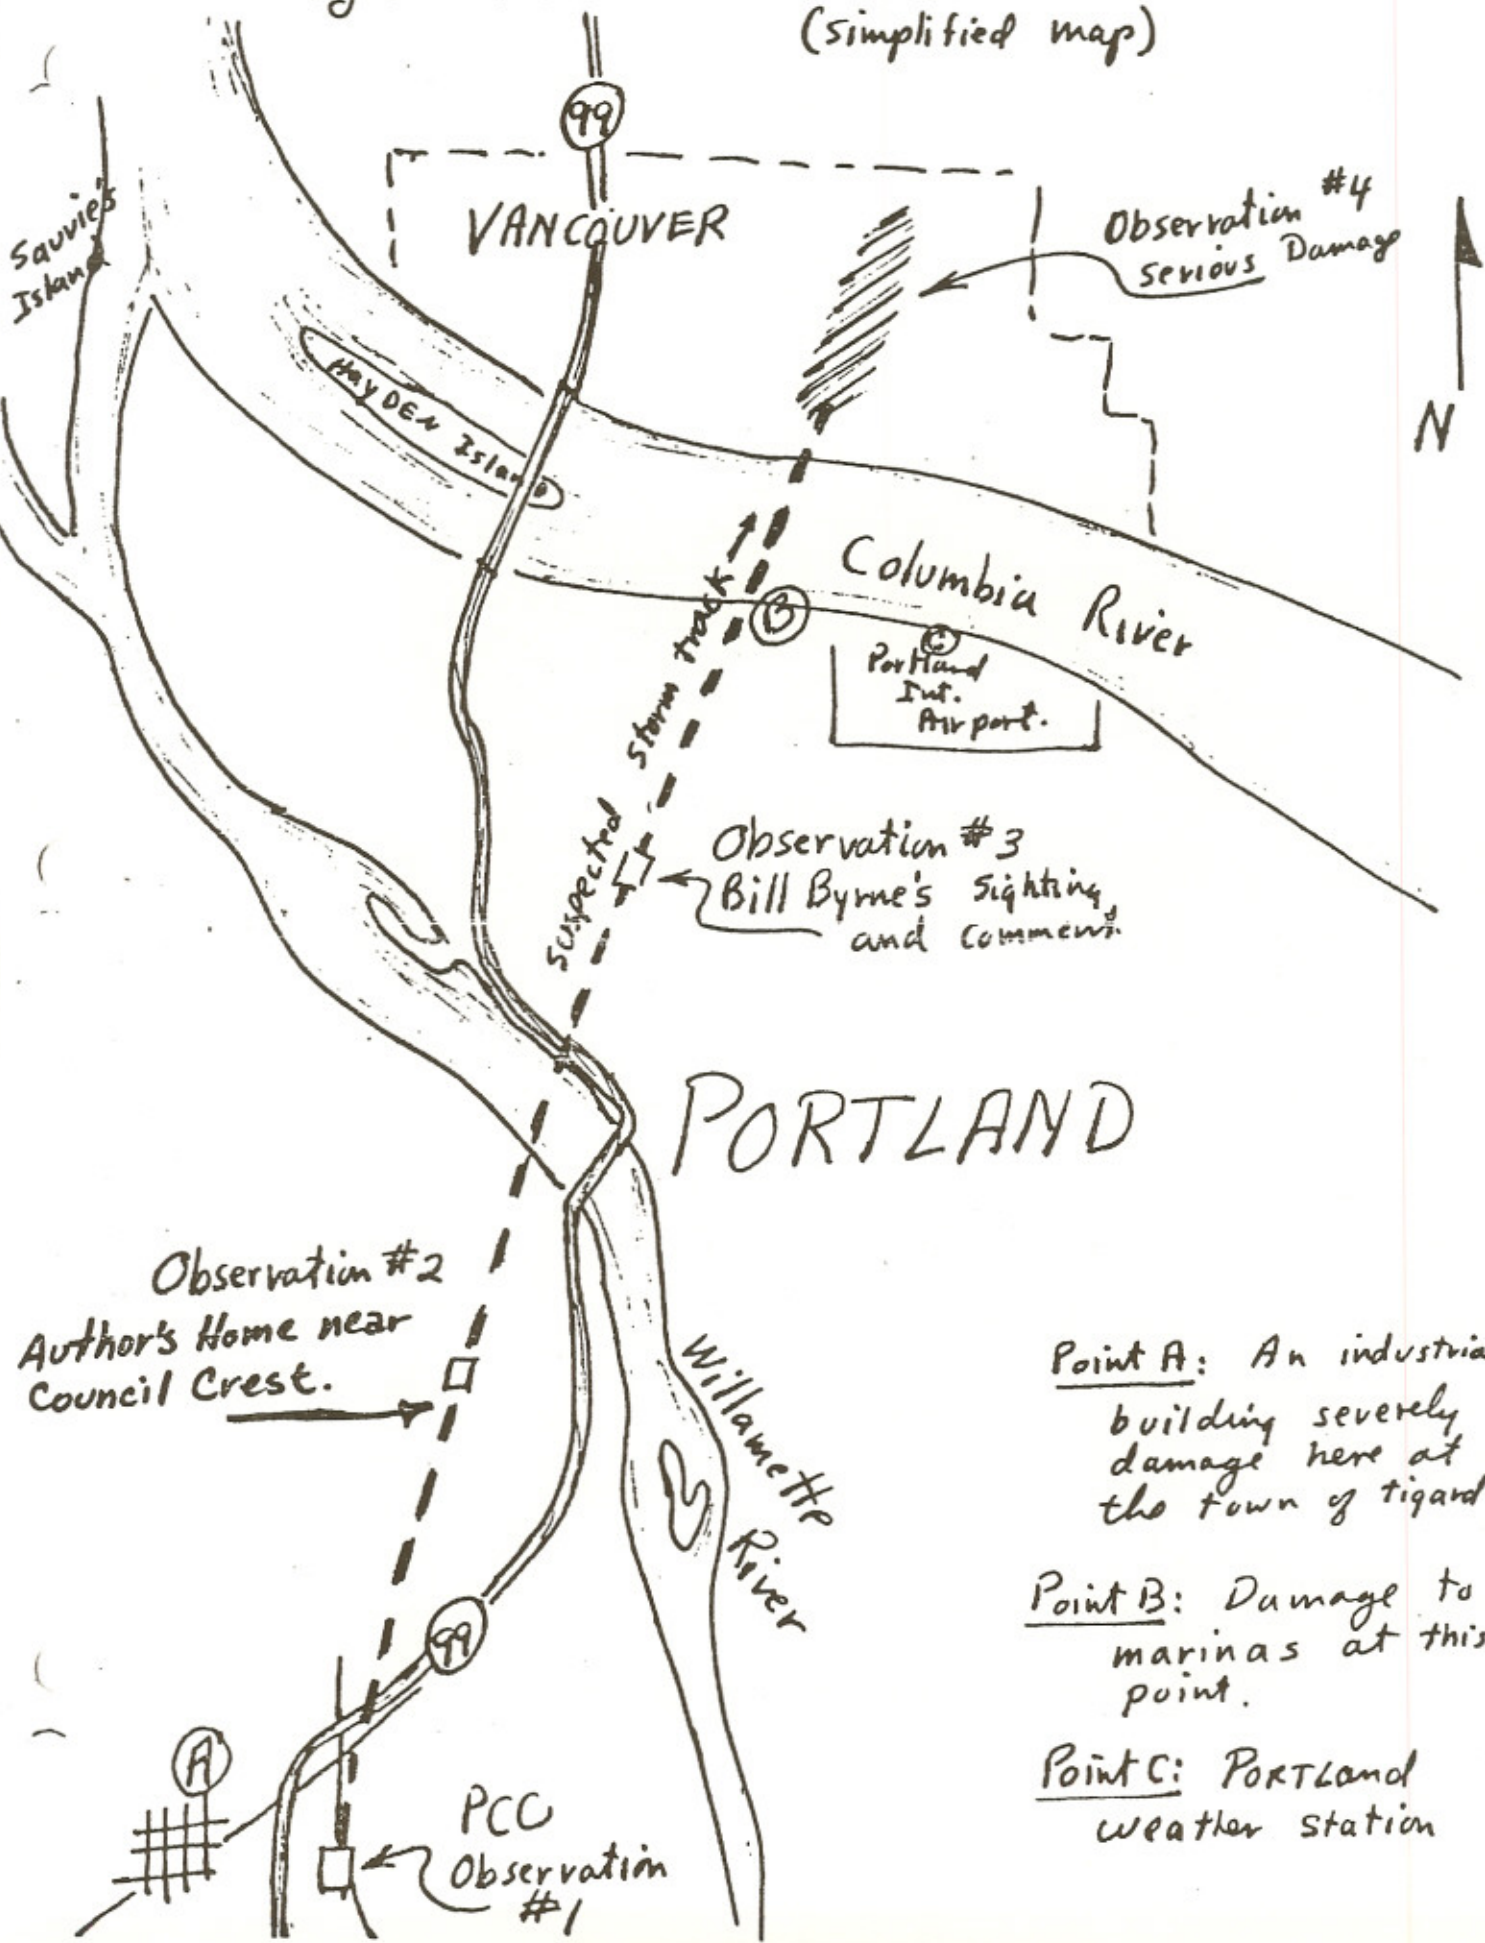 (simplified map)
99
VANCOUVER
Observation #4
serious Damage
Sauvie's
Island
HAYDEN Island
N
Columbia River
B
C
Portland
Int.
Airport.
Suspected storm track
Observation #3
Bill Byrne's Sighting
and Comment.
PORTLAND
Observation #2
Author's Home near
Council Crest.
Willamette
River
Point A: An industria
building severely
damage here at
the town of tigard
Point B: Damage to
marinas at this
point.
Point C: PORTLand
weather station
99
A
PCC
Observation
#1